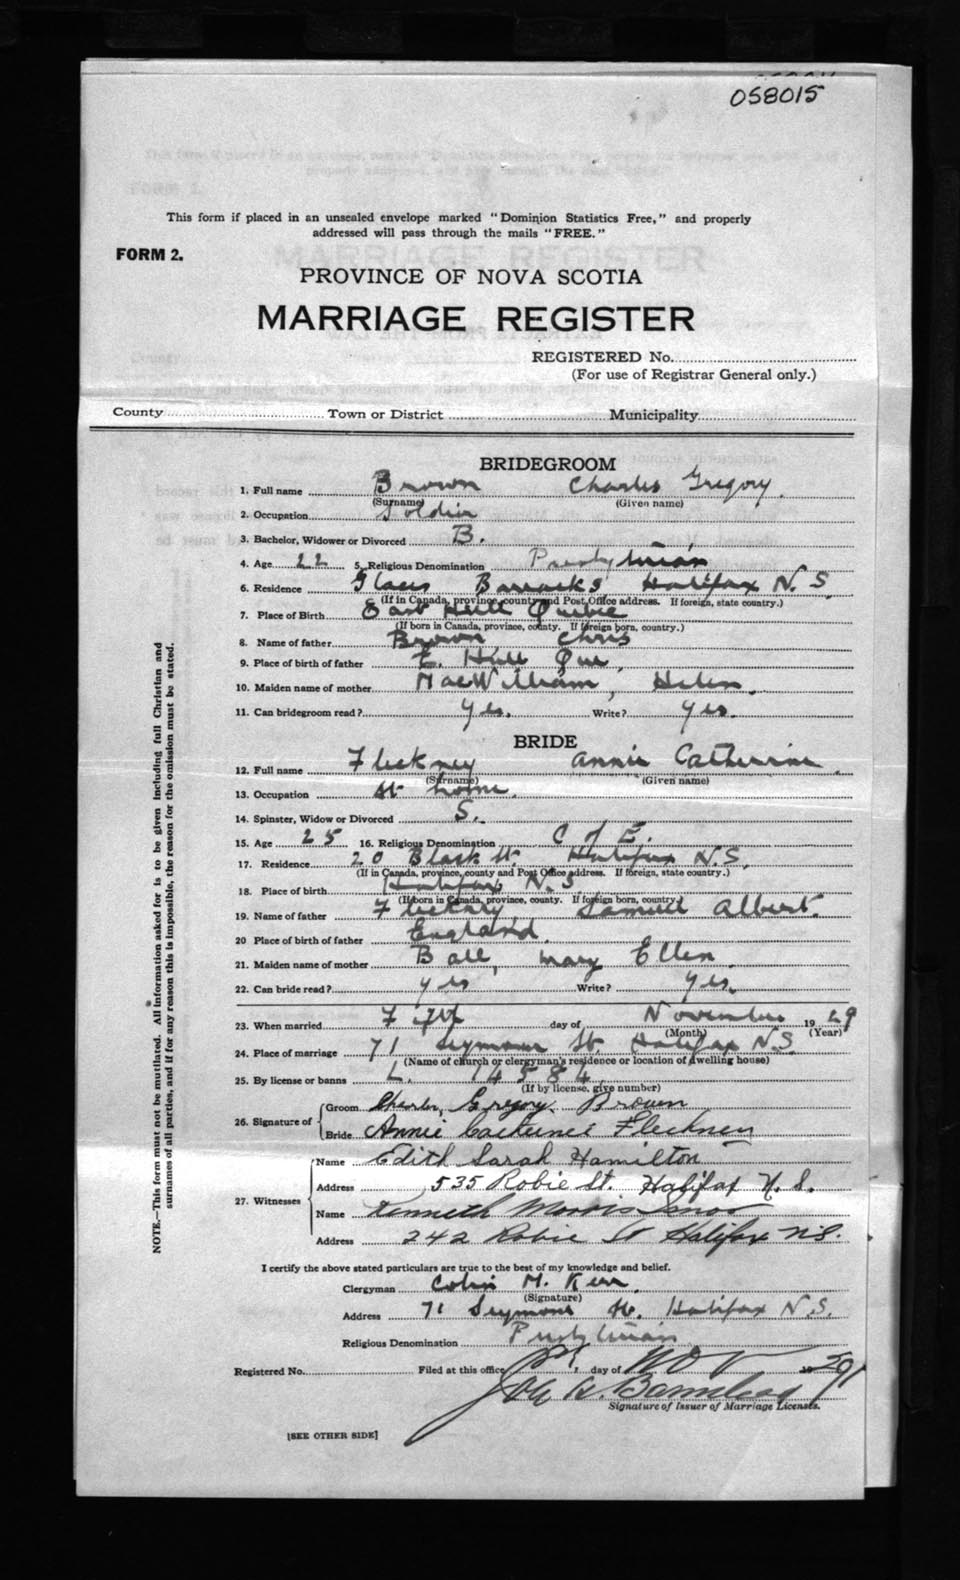 058015
This form if placed in an unsealed envelope marked "Dominion Statistics Free," and properly
addressed will pass through the mails "FREE."
FORM 2.
PROVINCE OF NOVA SCOTIA
MARRIAGE REGISTER
REGISTERED No.
(For use of Registrar General only.)
County Town or District Municipality
BRIDEGROOM
1. Full name Brown Charles Gregory
(Surname) (Given name)
2. Occupation Soldier
3. Bachelor, Widower or Divorced B.
4. Age 22 5. Religious Denomination Presbyterian
6. Residence Glacis Barracks Halifax N.S.
(If in Canada, province, county and Post Office address. If foreign, state country.)
7. Place of Birth East Hull Quebec
(If born in Canada, province, county. If foreign born, country.)
8. Name of father Brown Chris
9. Place of birth of father E. Hull Que,
10. Maiden name of mother MacWilliam, Helen.
11. Can bridegroom read? Yes. Write? Yes.
BRIDE
12. Full name Fleckney Annie Catherine
(Surname) (Given name)
13. Occupation At home.
14. Spinster, Widow or Divorced S.
15. Age 25 16. Religious Denomination C of E.
17. Residence 20 Black St. Halifax N.S.
(If in Canada, province, county and Post Office address. If foreign, state country.)
18. Place of birth Halifax N.S.
(If born in Canada, province, county. If foreign born, country.)
19. Name of father Fleckney Samuel Albert.
20 Place of birth of father England.
21. Maiden name of mother Ball, Mary Ellen
22. Can bride read? Yes Write? Yes.
23. When married Fifth day of November 1929
(Month) (Year)
24. Place of marriage 71 Seymour St Halifax N.S.
(Name of church or clergyman's residence or location of dwelling house)
25. By license or banns L. 14584
(If by license, give number)
26. Signature of Groom Charles Gregory Brown
Bride Annie Catherine Fleckney
27. Witnesses Name Edith Sarah Hamilton
Address 535 Robie St. Halifax N.S.
Name Kenneth Morris
Address 242 Robie St Halifax N.S.
I certify the above stated particulars are true to the best of my knowledge and belief.
Clergyman Colin M. Kerr
(Signature)
Address 71 Seymour St. Halifax N.S.
Religious Denomination Presbyterian
Registered No. Filed at this office day of Nov 1929
Signature of Issuer of Marriage Licenses.
[SEE OTHER SIDE]
NOTE.—This form must not be mutilated. All information asked for is to be given including full Christian and
surnames of all parties, and if for any reason this is impossible, the reason for the omission must be stated.